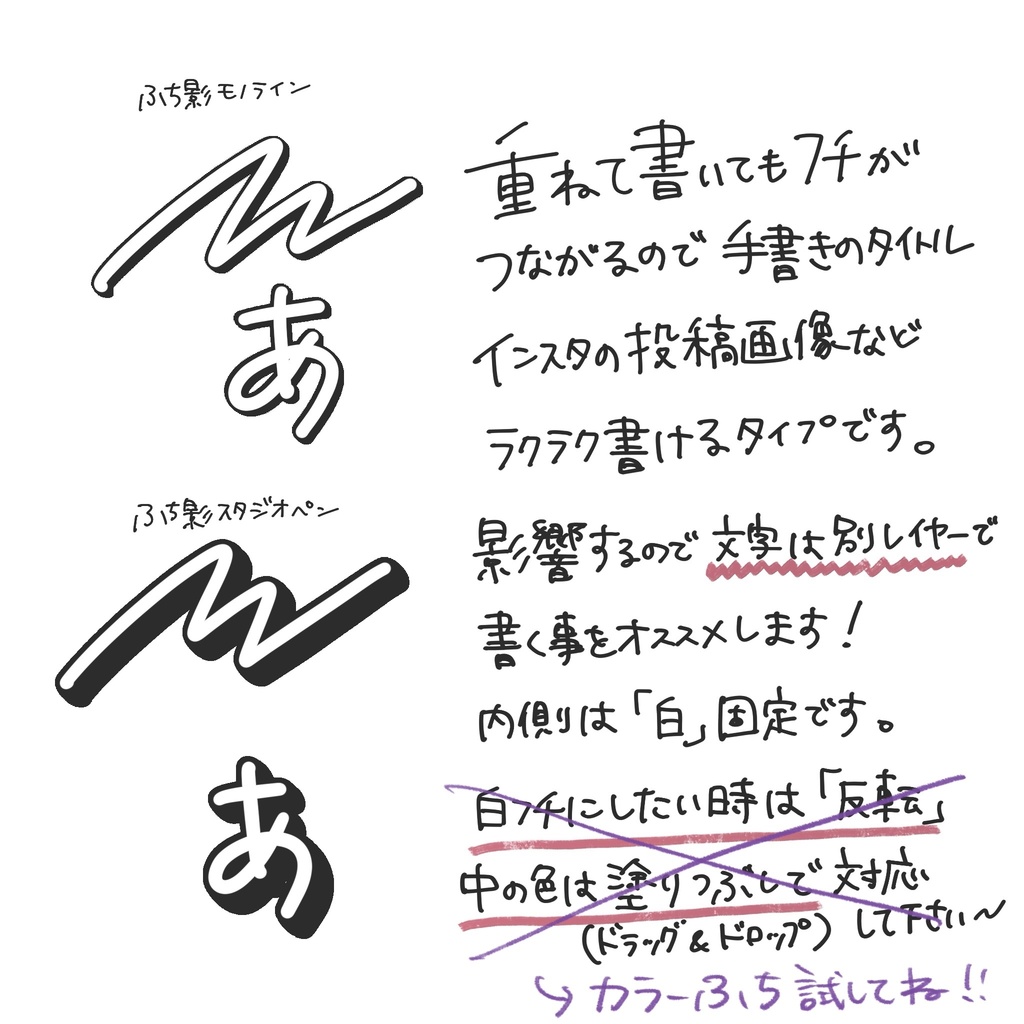 ふち影モノライン
あ
重ねて書いてもフチが
つながるので手書きのタイトル
インスタの投稿画像など
ラクラク書けるタイプです。
ふち影スタジオペン
あ
影響するので文字は別レイヤーで
書く事をオススメします!
内側は「白」固定です。
白フチにしたい時は「反転」
中の色は塗りつぶしで対応
(ドラッグ&ドロップ)して下さい〜
↪カラーふち試してね!!